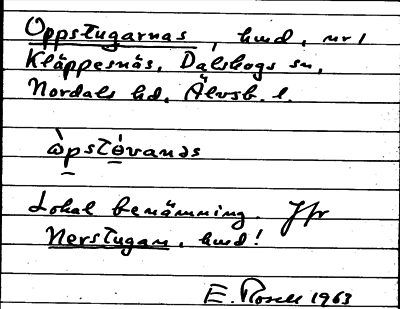 Oppstugarnas, hmd, nr 1
Kläppesnäs, Dalskogs sn,
Nordals hd, Älvsb. l.
òpstóvanas
Lokal benämning. Jfr
Nerstugan, hmd!
E. Rosell 1963